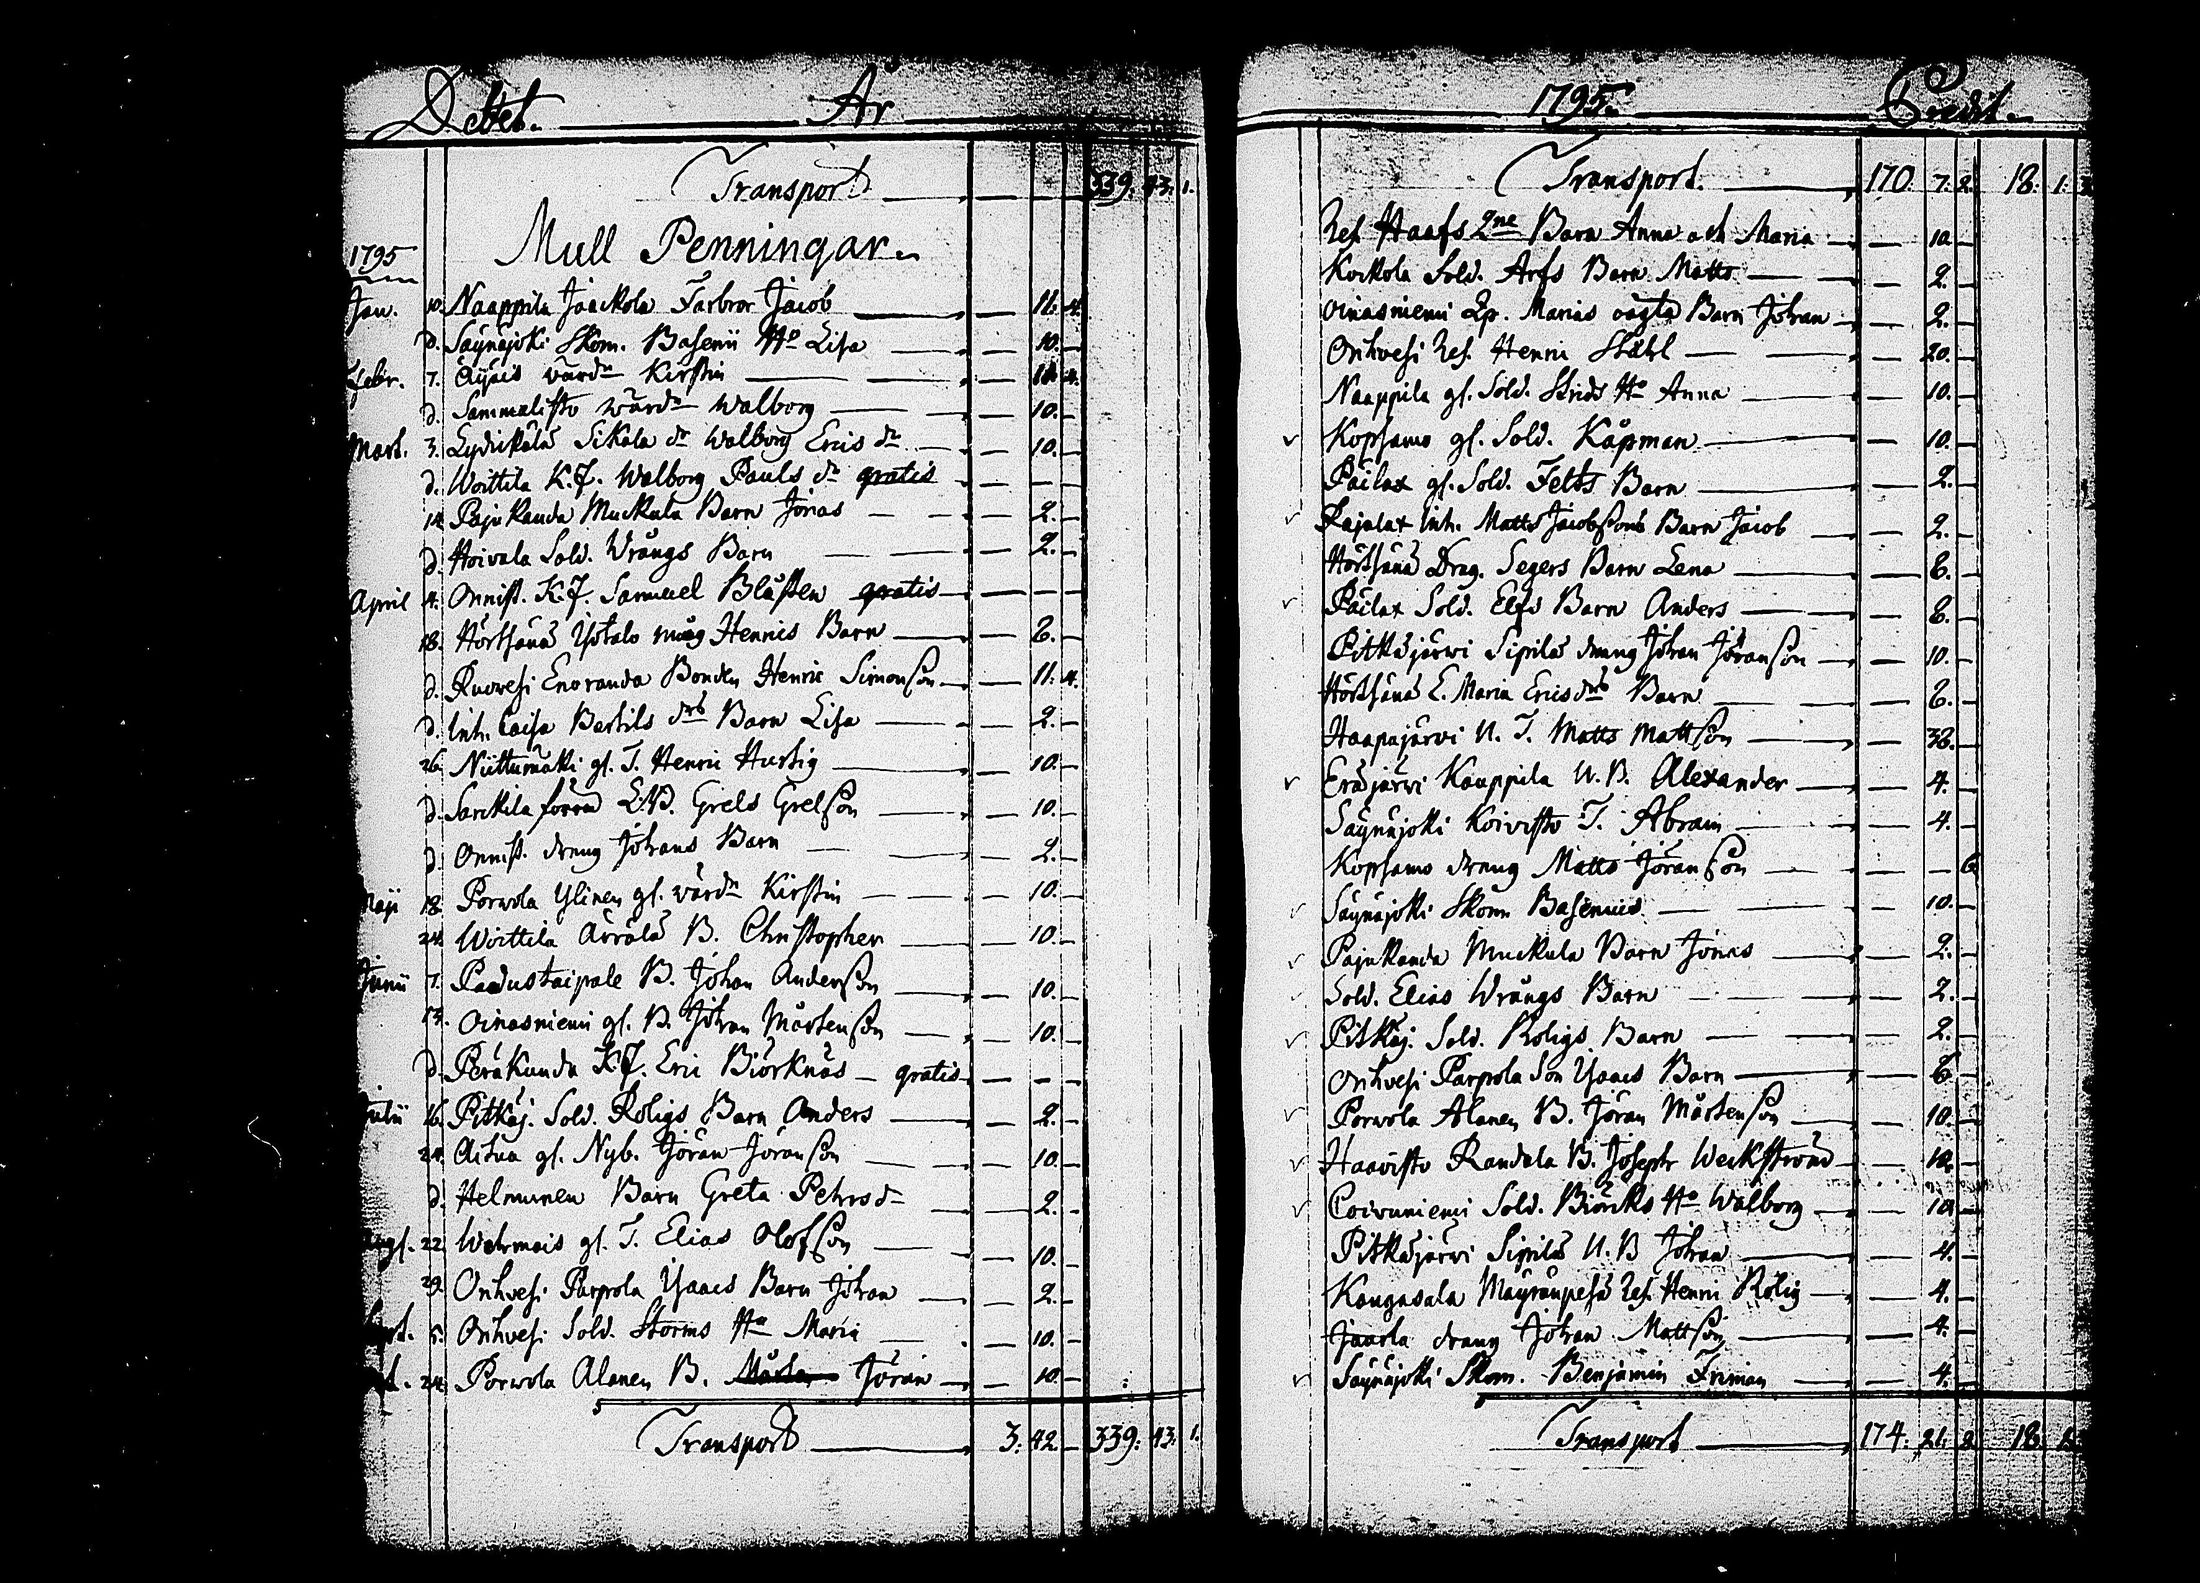 Debet. År
Transport 339. 43. 1.
1795 Mull Penningar
Jan. 10. Naappila Jaackola Farbror Jacob — 11. 4.
d. Säynäjoki Skom. Basenii Ho Lisa — 10. —
Febr. 7. Äijäis värdn Kirstin —
d. Sammalisto värdn Walborg — 10. —
Mart. 3. Lydickälä Sikala dr Walborg Erics dr — 10. —
d. Woittila K.J. Walborg Pauls dr gratis — — —
14. Pajukanda Muckula Barn Jonas — 2. —
d. Hoivala Sold. Wrångs Barn — 2. —
April 4. Onnist. K.J. Samuel Blåsten gratis — — —
18. Hörtsänä Ylötalo måg Henrics Barn — 2. —
d. Ruovesi Enoranda Bonden Henric Simonson — 11. 4.
d. Inh. Caisa Bertils drs Barn Lisa — 2. —
26. Niittumäki gl. T. Henric Hurtig — 10. —
d. Sarckila förra Grels Grelson — 10. —
d. Onnist. dräng Johans Barn — 2. —
Maji 18. Porvola Ylinen gl. värdn Kirstin — 10. —
24. Woittila Ärrälä B. Christopher — 10. —
Junii 7. Padustaipale B. Johan Anderson — 10. —
13. Oinasniemi gl. B. Johan Mårtenson — 10. —
d. Peräkunda K.J. Eric Biörknäs — gratis — — —
Julii 16. Pitkäj. Sold. Roligs Barn Anders — 2. —
24. Aitua gl. Nyb. Jöran Jöranson — 10. —
d. Helminen Barn Greta Petersdr — 2. —
Aug. 22. Wehmais gl. T. Elias Olofson — 10. —
29. Orihvesi Parpola Ysaacs Barn Johan — 2. —
Sept. 5. Orihvesi Sold. Storms Ha Maria — 10. —
24. Porvola Alanen B. Jöran — 10. —
Transport — 3. 42. — 339. 43. 1.
1795. Credit.
Transport. 170. 7. 2. 18. 1.
Res. Haafs 2ne Barn Anna och Maria — 10 —
Kockola Sold. Arfs Barn Matts — 2. —
Oinasniemi Lp. Marias oägta Barn Johan — 2. —
Orihvesi Res. Henric Ståhl — 20. —
Naappila gl. Sold. Strids Ho Anna — 10. —
v Kopsamo gl. Sold. Kåpman — 10. —
Päilax gl. Sold. Felts Barn — 2. —
v Pajalax Inh. Matts Jacobsons Barn Jacob — 2. —
Hörtsänä Drag. Segers Barn Lena —
v Päilax Sold. Elfs Barn Anders —
Pitkäjärvi Sipilä dräng Johan Jöranson — 10. —
Hörtsänä E. Maria Ericsdrs Barn —
Haapajärvi U. T. Matts Mattson — 38. —
v Eräjärvi Kauppila U. B. Alexander — 4. —
Säynäjoki Koivisto T. Abram — 4. —
Kopsamo dräng Matts Jöranson — — 6
v Säynäjoki Skom. Basenius — 10. —
v Pajukanda Muckula Barn Jonas — 2. —
v Sold. Elias Wrångs Barn — 2. —
v Pitkäj. Sold. Roligs Barn — 2. —
Orihvesi Parpola Son Ysaacs Barn — 6 —
v Porvola Alanen B. Jöran Mårtenson — 10. —
v Haavisto Randala B. Joseph Weckström — 10. —
v Coivuniemi Sold. Biörcks Ho Walborg — 10 —
Pitkäjärvi Sipilä U. B Johan — 4. —
Kangasala Mäyränpesä Res. Henric Rolig — 4. —
Jaarla dräng Johan Mattson — 4. —
v Säynäjoki Skom. Benjamin Friman — 4. —
Transport — 174. 21. 2 18.